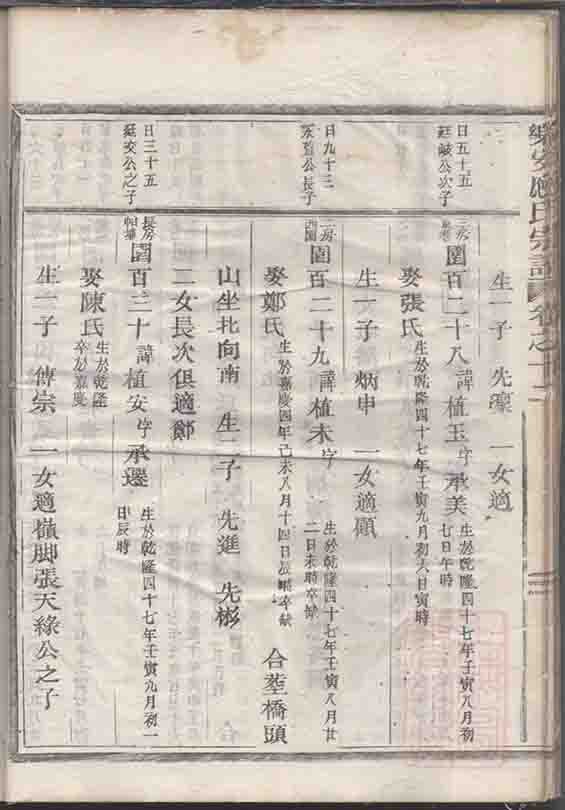 樂安應氏宗譜 卷之十二
生一子 先凜 一女適
日五十五
廷岐公次子
三房
圍百二十八 諱植玉字承美
生於乾隆四十七年壬寅八月初
七日午時
娶張氏 生於乾隆四十七年壬寅九月初六日寅時
生一子 炳申 一女適顧
日九十三
公長子
二房
圍百二十九 諱植未字
生於乾隆四十七年壬寅八月廿
二日未時卒缺
娶鄭氏 生於嘉慶四年己未八月十四日辰時卒缺 合葬橋頭
山坐北向南 生二子 先進 先彬
二女長次俱適節
日三十五
廷安公之子
長房
圍百三十 諱植安字承選
生於乾隆四十七年壬寅九月初一
甲辰時
娶陳氏
生於乾隆
卒於嘉慶
生一子 傳宗 一女適嶺脚張天緣公之子